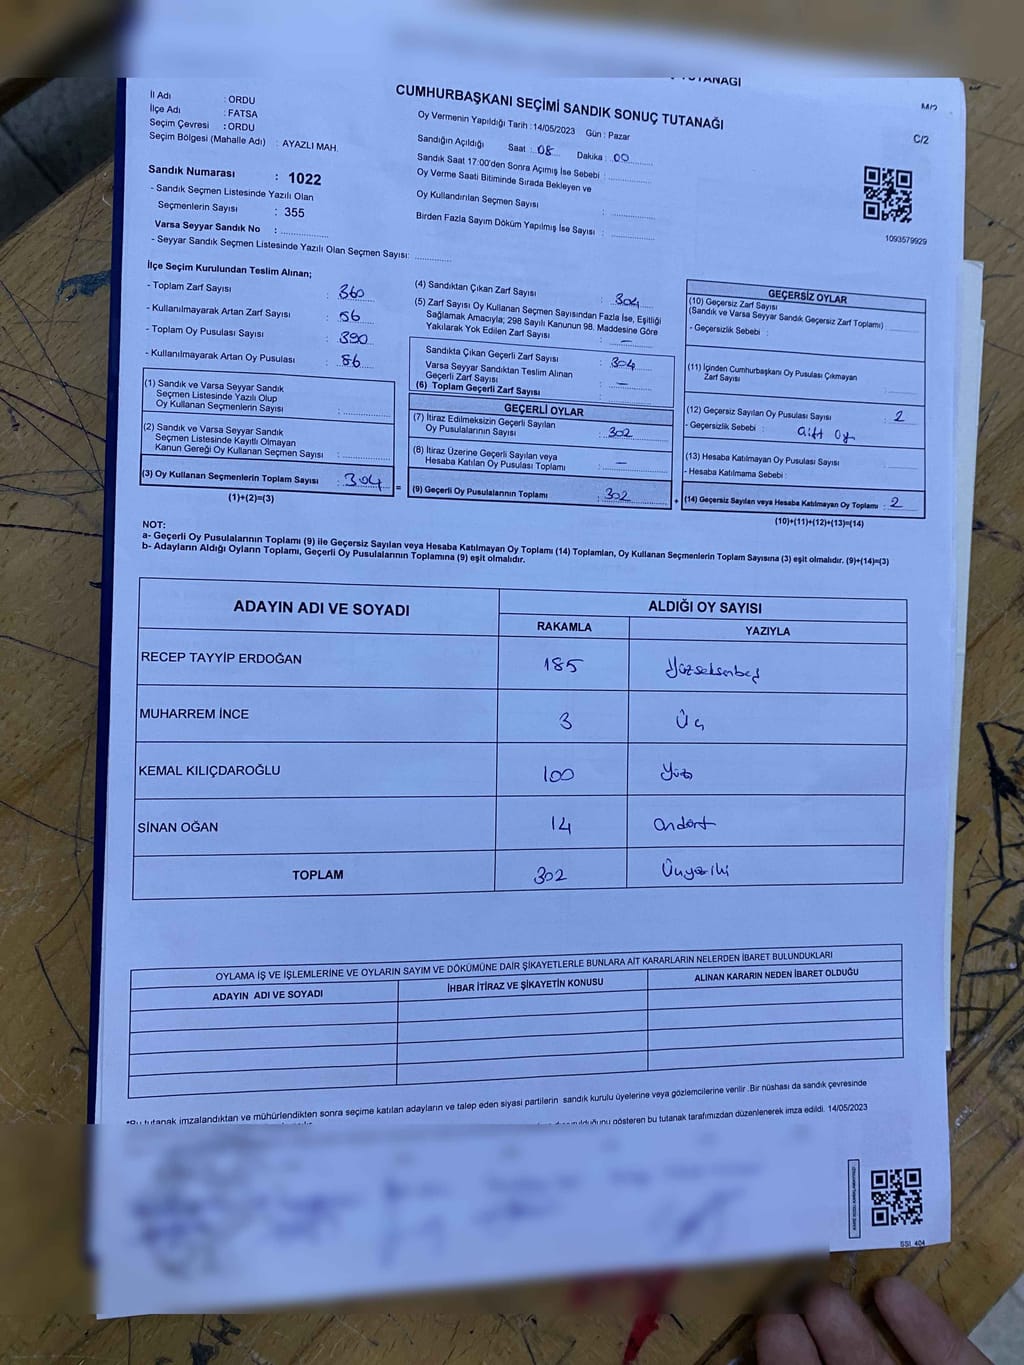 TUTANAĞI
CUMHURBAŞKANI SEÇİMİ SANDIK SONUÇ TUTANAĞI
C/2
İl Adı : ORDU
İlçe Adı : FATSA
Seçim Çevresi : ORDU
Seçim Bölgesi (Mahalle Adı) : AYAZLI MAH.
Oy Vermenin Yapıldığı Tarih : 14/05/2023 Gün : Pazar
Sandığın Açıldığı Saat : 08 Dakika : 00
Sandık Saat 17:00'den Sonra Açımış İse Sebebi :
Oy Verme Saati Bitiminde Sırada Bekleyen ve
Oy Kullandırılan Seçmen Sayısı :
Birden Fazla Sayım Döküm Yapılmış İse Sayısı :
1093579929
Sandık Numarası : 1022
- Sandık Seçmen Listesinde Yazılı Olan
Seçmenlerin Sayısı : 355
Varsa Seyyar Sandık No :
- Seyyar Sandık Seçmen Listesinde Yazılı Olan Seçmen Sayısı:
İlçe Seçim Kurulundan Teslim Alınan;
- Toplam Zarf Sayısı : 360
- Kullanılmayarak Artan Zarf Sayısı : 56
- Toplam Oy Pusulası Sayısı : 390
- Kullanılmayarak Artan Oy Pusulası : 86
(1) Sandık ve Varsa Seyyar Sandık
Seçmen Listesinde Yazılı Olup
Oy Kullanan Seçmenlerin Sayısı :
(2) Sandık ve Varsa Seyyar Sandık
Seçmen Listesinde Kayıtlı Olmayan
Kanun Gereği Oy Kullanan Seçmen Sayısı :
(3) Oy Kullanan Seçmenlerin Toplam Sayısı : 304
(1)+(2)=(3)
(4) Sandıktan Çıkan Zarf Sayısı : 304
(5) Zarf Sayısı Oy Kullanan Seçmen Sayısından Fazla İse, Eşitliği
Sağlamak Amacıyla; 298 Sayılı Kanunun 98. Maddesine Göre
Yakılarak Yok Edilen Zarf Sayısı : —
Sandıkta Çıkan Geçerli Zarf Sayısı : 304
Varsa Seyyar Sandıktan Teslim Alınan
Geçerli Zarf Sayısı : —
(6) Toplam Geçerli Zarf Sayısı :
GEÇERLİ OYLAR
(7) İtiraz Edilmeksizin Geçerli Sayılan
Oy Pusulalarının Sayısı : 302
(8) İtiraz Üzerine Geçerli Sayılan veya
Hesaba Katılan Oy Pusulası Toplamı : —
= (9) Geçerli Oy Pusulalarının Toplamı : 302 +
GEÇERSİZ OYLAR
(10) Geçersiz Zarf Sayısı
(Sandık ve Varsa Seyyar Sandık Geçersiz Zarf Toplamı)
- Geçersizlik Sebebi :
(11) İçinden Cumhurbaşkanı Oy Pusulası Çıkmayan
Zarf Sayısı :
(12) Geçersiz Sayılan Oy Pusulası Sayısı : 2
- Geçersizlik Sebebi : Çift Oy
(13) Hesaba Katılmayan Oy Pusulası Sayısı
- Hesaba Katılmama Sebebi
(14) Geçersiz Sayılan veya Hesaba Katılmayan Oy Toplamı : 2
(10)+(11)+(12)+(13)=(14)
NOT:
a- Geçerli Oy Pusulalarının Toplamı (9) ile Geçersiz Sayılan veya Hesaba Katılmayan Oy Toplamı (14) Toplamları, Oy Kullanan Seçmenlerin Toplam Sayısına (3) eşit olmalıdır. (9)+(14)=(3)
b- Adayların Aldığı Oyların Toplamı, Geçerli Oy Pusulalarının Toplamına (9) eşit olmalıdır.
ADAYIN ADI VE SOYADI ALDIĞI OY SAYISI
RAKAMLA YAZIYLA
RECEP TAYYİP ERDOĞAN 185 Yüzseksenbeş
MUHARREM İNCE 3 Üç
KEMAL KILIÇDAROĞLU 100 Yüz
SİNAN OĞAN 14 Ondört
TOPLAM 302 Üçyüziki
OYLAMA İŞ VE İŞLEMLERİNE VE OYLARIN SAYIM VE DÖKÜMÜNE DAİR ŞİKAYETLERLE BUNLARA AİT KARARLARIN NELERDEN İBARET BULUNDUKLARI
ADAYIN ADI VE SOYADI İHBAR İTİRAZ VE ŞİKAYETİN KONUSU ALINAN KARARIN NEDEN İBARET OLDUĞU
*Bu tutanak imzalandıktan ve mühürlendikten sonra seçime katılan adayların ve talep eden siyasi partilerin sandık kurulu üyelerine veya gözlemcilerine verilir .Bir nüshası da sandık çevresinde
gösteren bu tutanak tarafımızdan düzenlenerek imza edildi. 14/05/2023
SSI_404